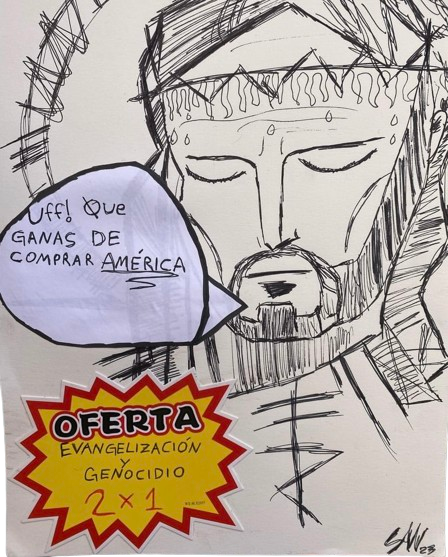 Uff! Que
GANAS DE
COMPRAR AMÉRICA
OFERTA
EVANGELIZACIÓN
Y
GENOCIDIO
2x1
SAW 23